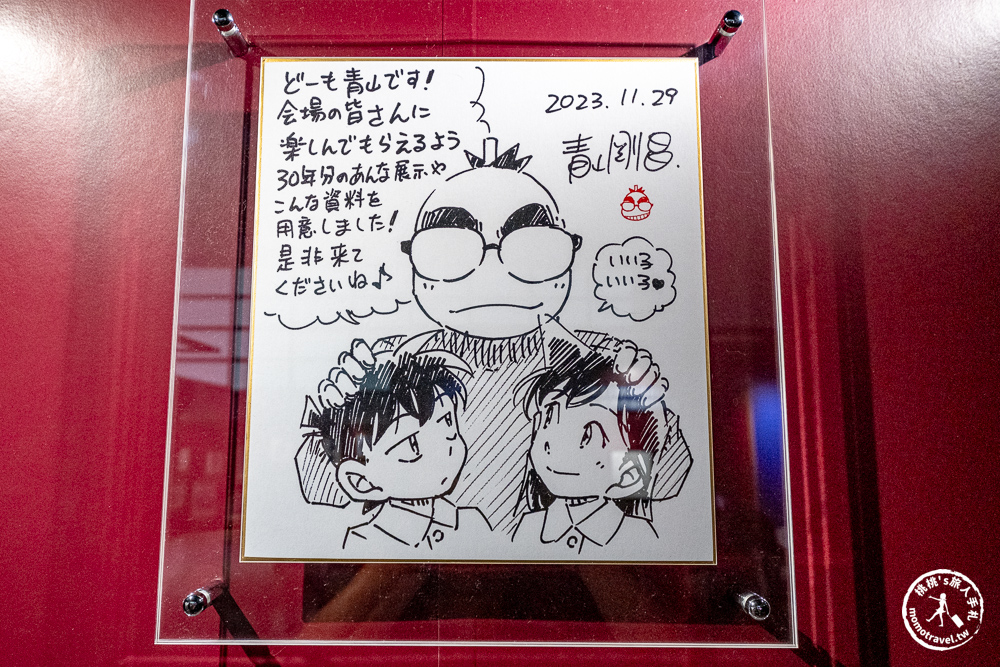 どーも青山です!
会場の皆さんに
楽しんでもらえるよう
30年分のあんな展示や
こんな資料を
用意しました!
是非来て
くださいね♪
2023.11.29
青山剛昌.
いい子
いい子♥
桃桃's旅人手札
momotravel.tw